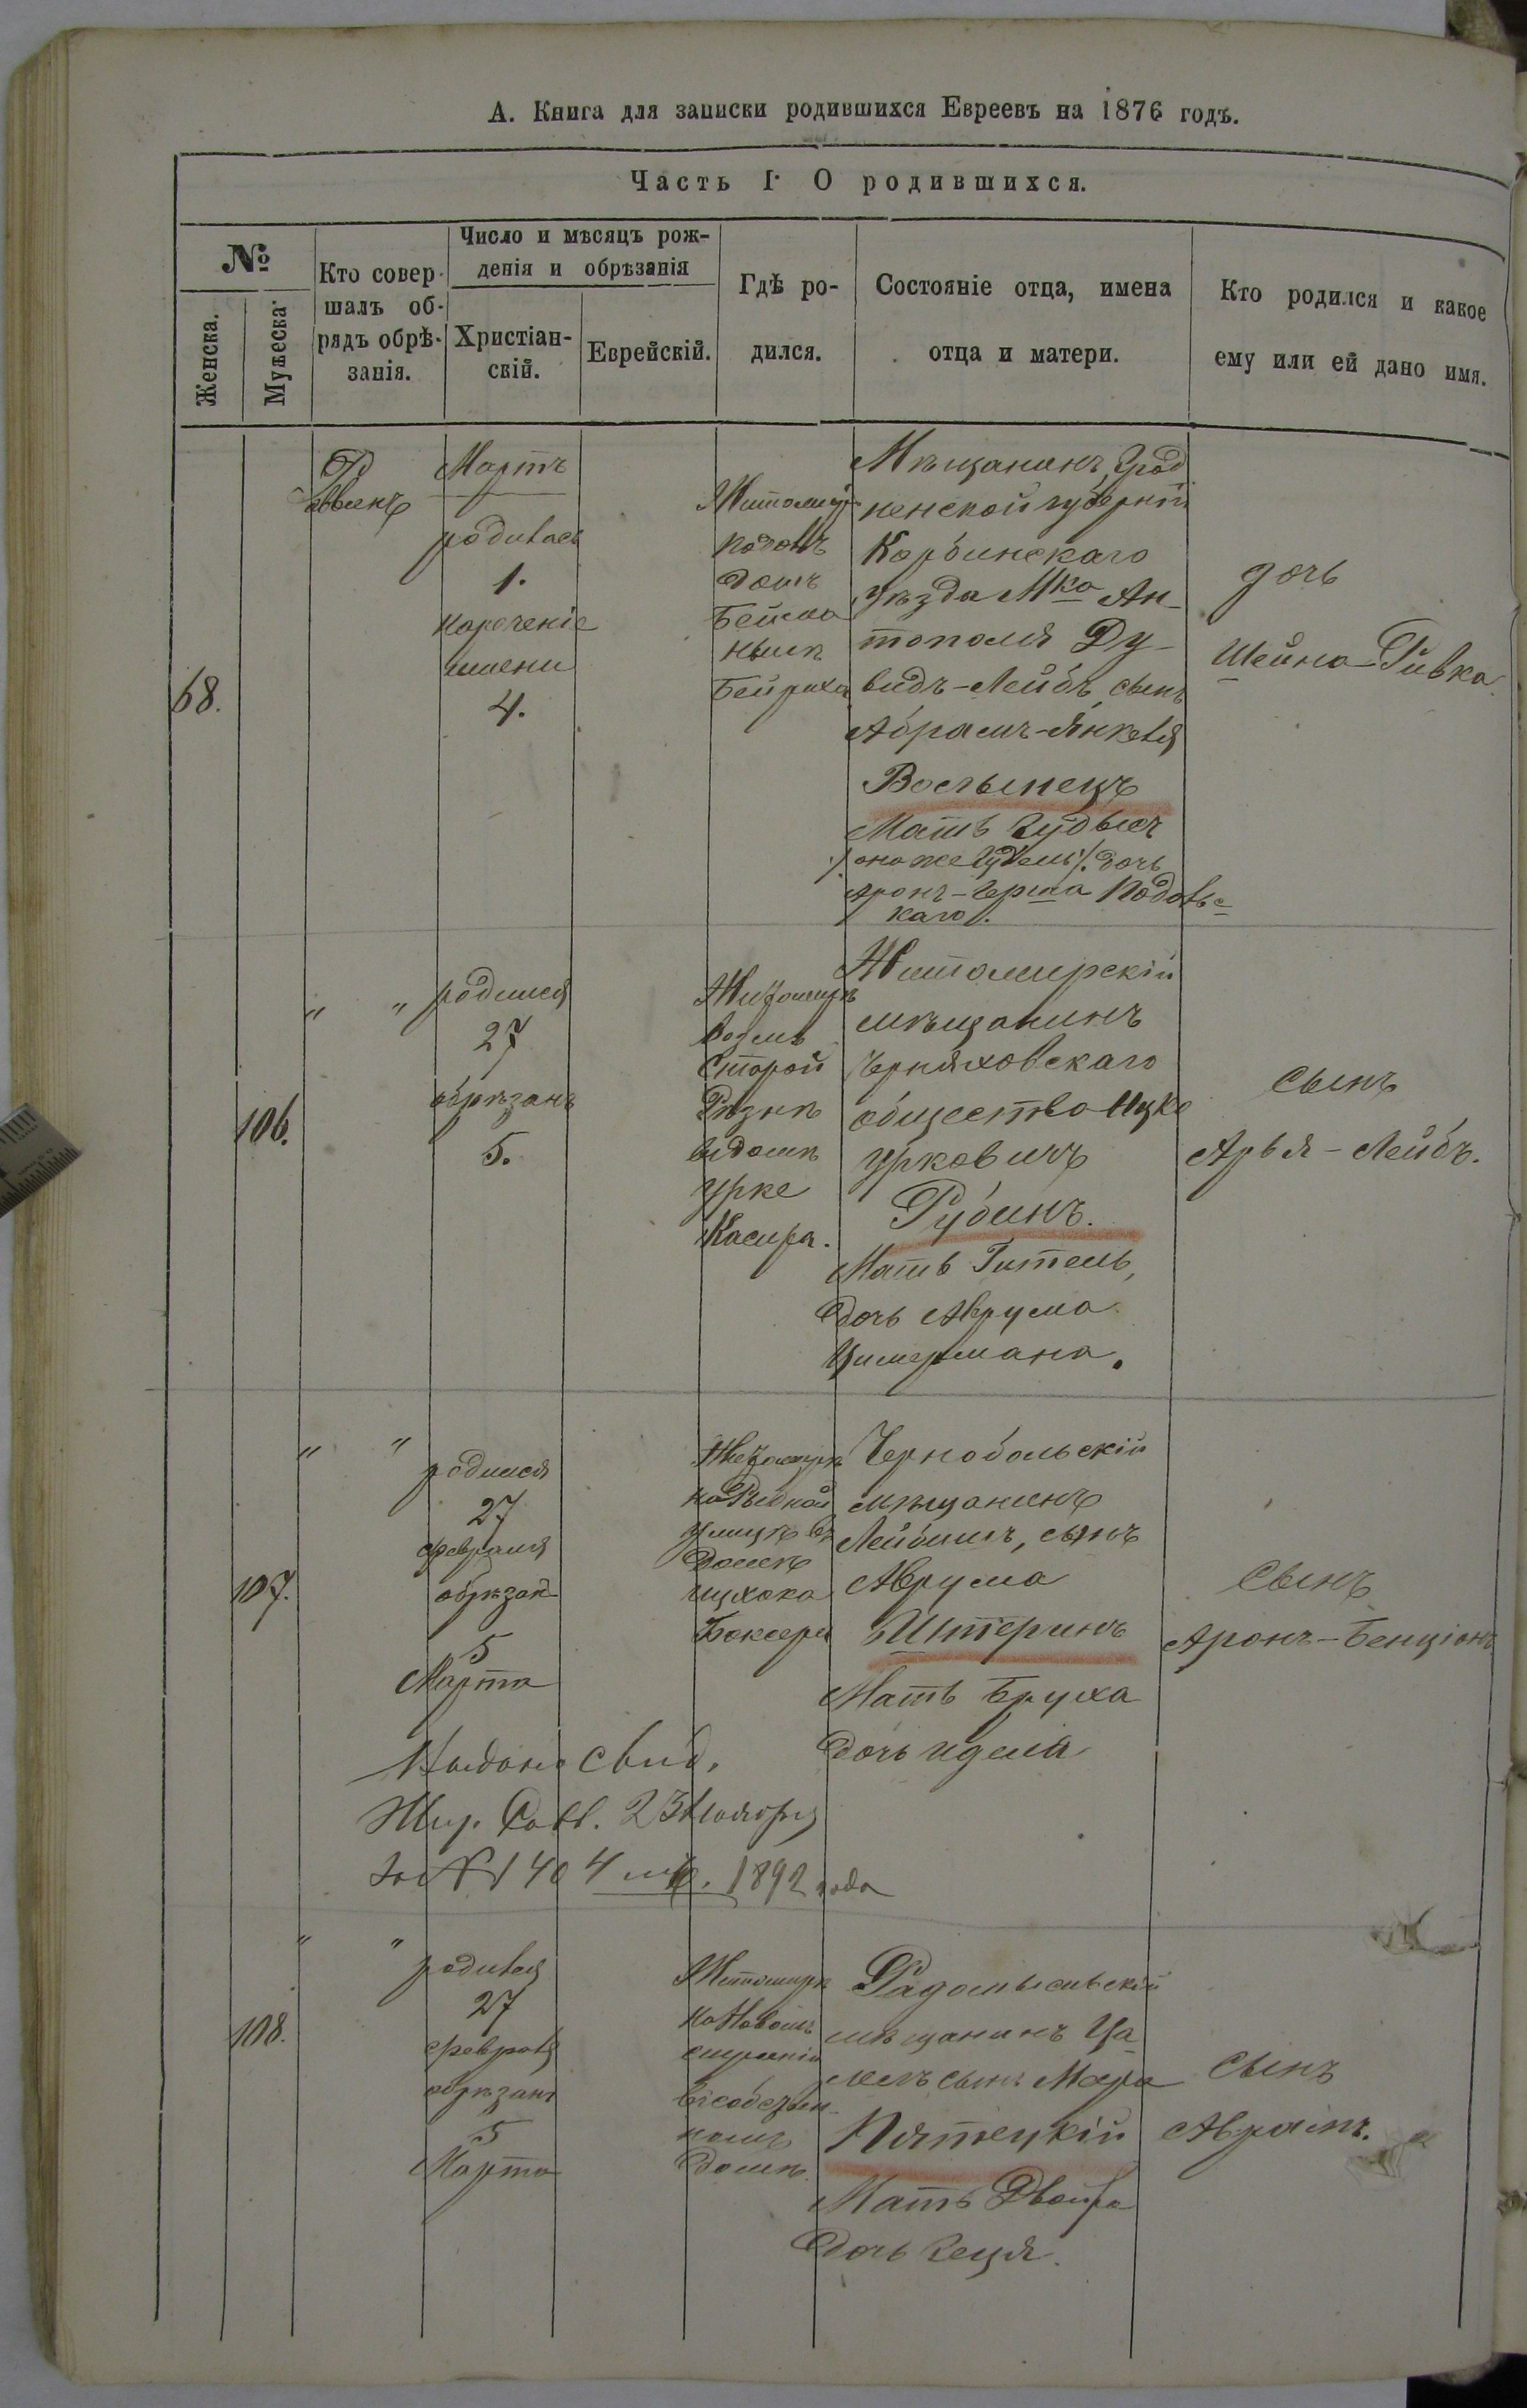 А. Книга для записки родившихся Евреевъ на 1876 годъ.
Часть I. О родившихся.
№
Женска.
Мужеска.
Кто совер-
шалъ об-
рядъ обрѣ-
занія.
Число и мѣсяцъ рож-
денія и обрѣзанія
Христіан-
скій.
Еврейскій.
Гдѣ ро-
дился.
Состояніе отца, имена
отца и матери.
Кто родился и какое
ему или ей дано имя.
68.
Мартъ
родилась
1.
нареченіе
имени
4.
Житомиръ
домъ
Бейриха
Мѣщанинъ, Грод
ненской губерніи
Кобринскаго
уѣзда Мка Ан-
тополя Ду-
видъ-Лейбъ, сынъ
Абрамъ-Янкеля
Волынецъ
Мать
она же дочь
Аронъ-Герша Подоль-
скаго.
дочь
Шейна-Ривка.
106.
" "
родился
27
обрѣзанъ
5.
Житомиръ
возлѣ
Старой
Рѣзни
въ домѣ
Урке
Касира.
Житомирскій
мѣщанинъ
Черняховскаго
общества Ицко
Урковичъ
Рубинъ.
Мать Гитель,
дочь Аврума
Цимермана.
сынъ
Арья-Лейбъ.
107.
" "
родился
27
февраля
обрѣзан
5
Марта
Житомиръ
на Рыбной
улицѣ въ
домѣ
Ицхока
Боксера
Чернобольскій
мѣщанинъ
Лейбишъ, сынъ
Аврума
Штеринъ
Мать Бруха
дочь Иделя
сынъ
Аронъ-Бенціонъ
Выдано свид.
23 Ноября
за № 1404 1892 года
108.
" "
родился
27
февраля
обрѣзанъ
5
Марта
Житомиръ
на Новомъ
строеніи
въ собствен-
номъ
домѣ.
Радомысльскій
мѣщанинъ Ца
лелъ сынъ
Пятецкій
Мать Двойра
дочь
сынъ
Авраамъ.